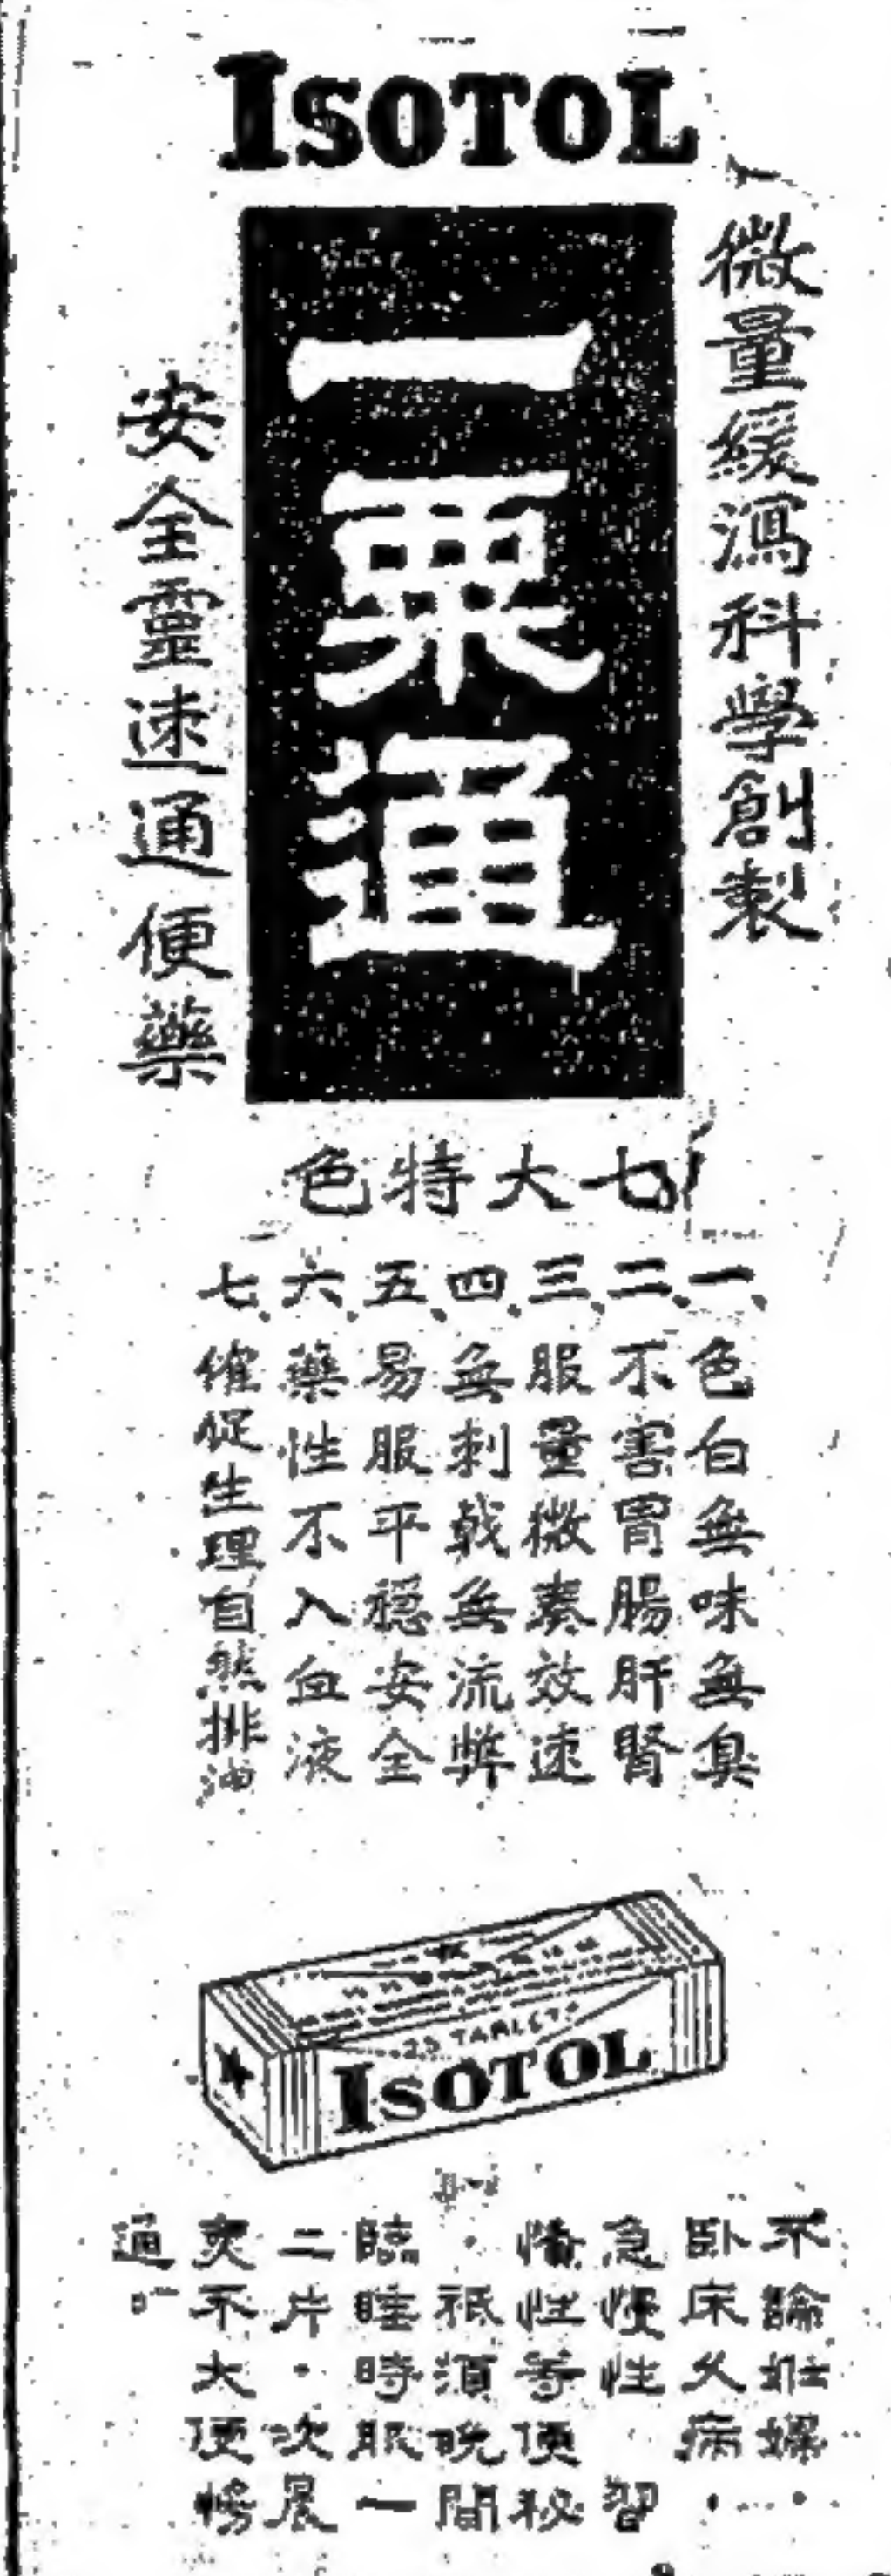 ISOTOL
微量緩瀉科學創製
一粟通
安全靈速通便藥
七大特色
一、色白無味無臭
二、不害胃腸肝腎
三、服量微奏效速
四、無刺戟無流弊
五、易服平穩安全
六、藥性不入血液
七、催促生理自然排油
25 TABLETS
ISOTOL
不論妊娠·
卧床久病·
急慢性·習
慣性等便秘
·祇須晚間
臨睡時服一
二片·次晨
奭不大便暢
通